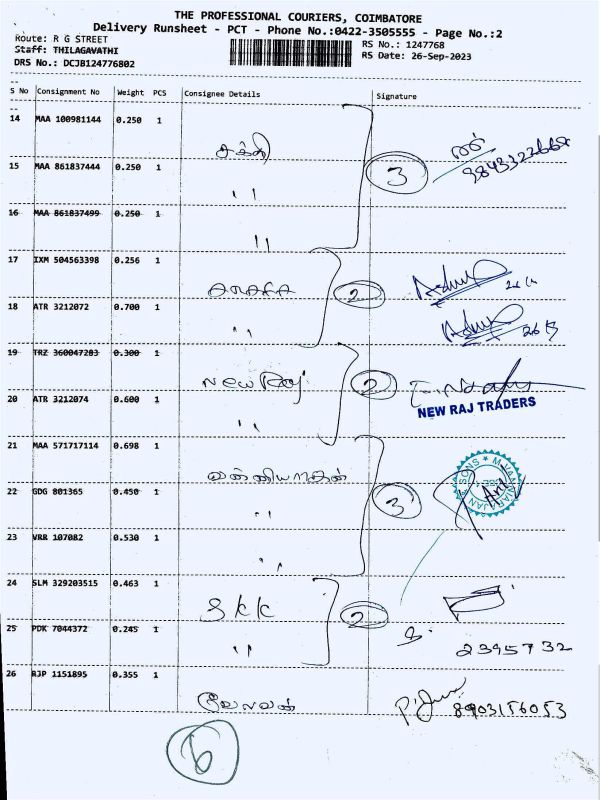 THE PROFESSIONAL COURIERS, COIMBATORE
Delivery Runsheet - PCT - Phone No.:0422-3505555 - Page No.:2
Route: R G STREET
Staff: THILAGAVATHI
DRS No.: DCJB124776802
RS No.: 1247768
RS Date: 26-Sep-2023
S No Consignment No Weight PCS Consignee Details Signature
14 MAA 100981144 0.250 1
சக்தி
3
15 MAA 861837444 0.250 1
''
16 MAA 861837499 0.250 1
''
17 IXM 504563398 0.256 1
2
18 ATR 3212072 0.700 1
''
19 TRZ 360047283 0.300 1
New Raj
2
NEW RAJ TRADERS
20 ATR 3212074 0.600 1
''
21 MAA 571717114 0.698 1
வன்னியராஜன்
3
22 GDG 801365 0.450 1
''
23 VRR 107082 0.530 1
''
24 SLM 329203515 0.463 1
SKK
2
25 PDK 7044372 0.245 1
''
2395732
26 RJP 1151895 0.355 1
8903156053
6